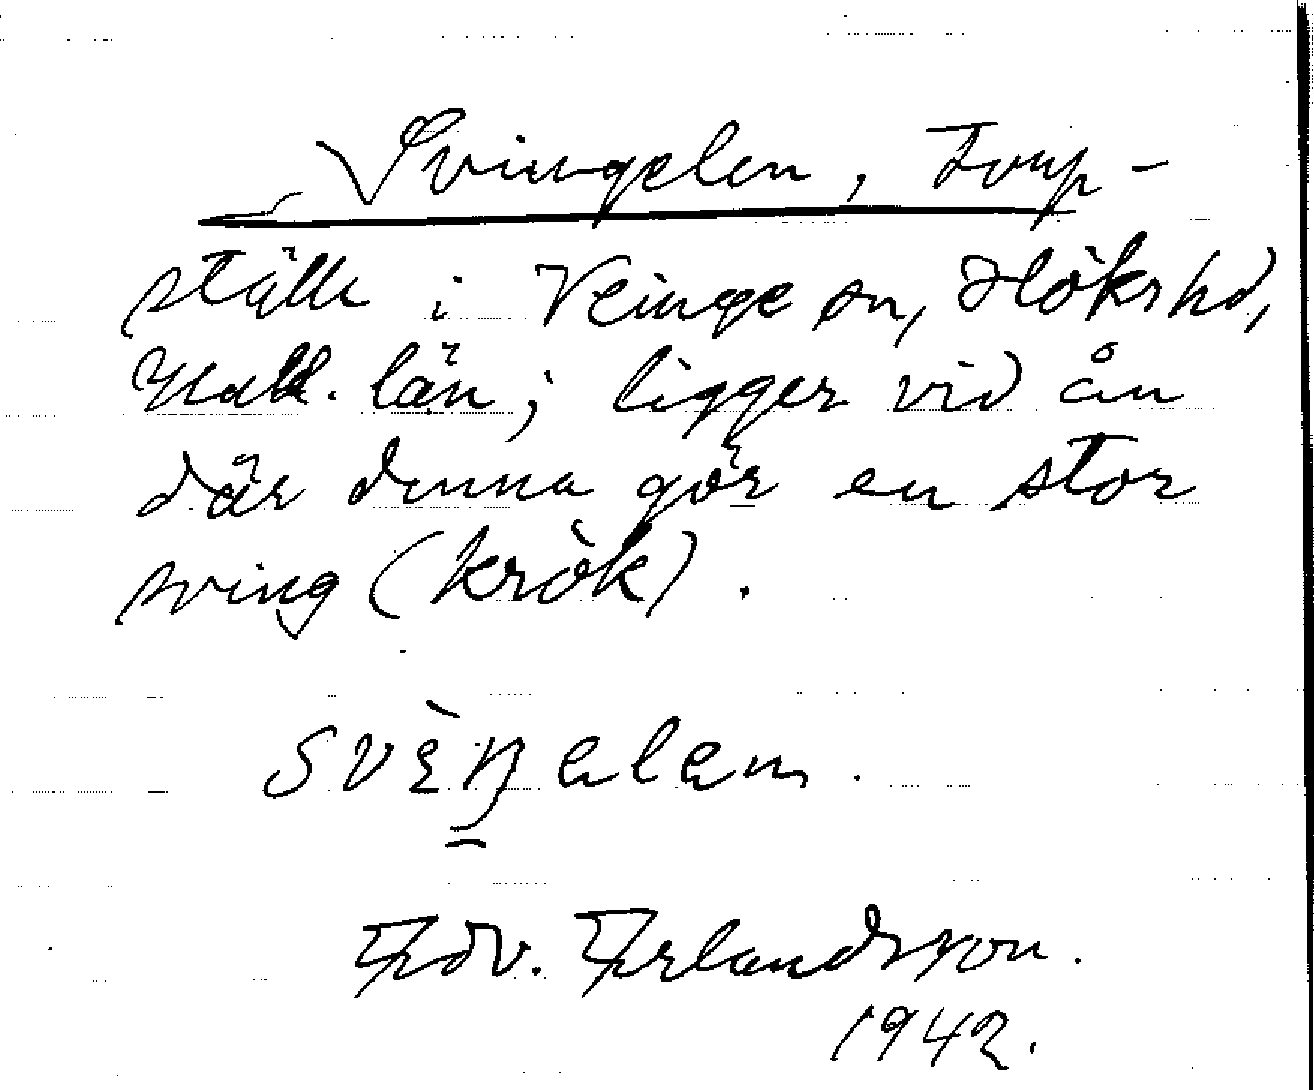 Svingelen, torp-
ställe i Veinge sn, Höks hd,
Hall. län; ligger vid ån
där denna gör en stor
sving (krök).
svèŋələn.
Edv. Erlandsson.
1942.